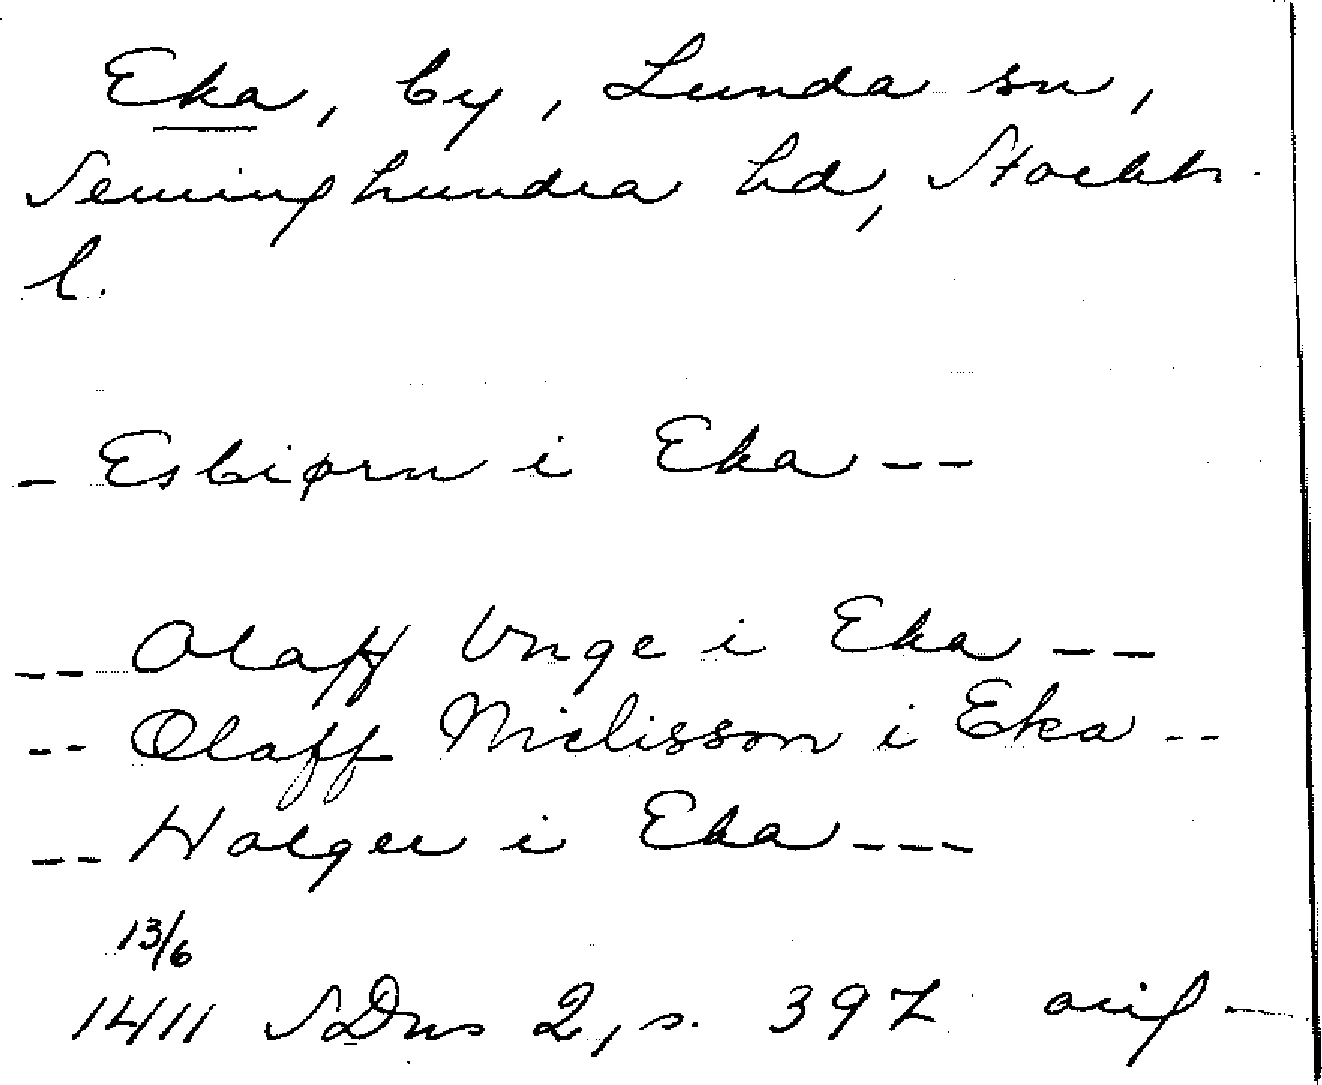 Eka, by, Lunda sn,
Seminghundra hd, Stockh.
l.
- Esbiørn i Eka --
-- Olaff Vnge i Eka --
-- Olaff Niclisson i Eka --
-- Holger i Eka ---
13/6
1411 SDns 2, s. 397 orig